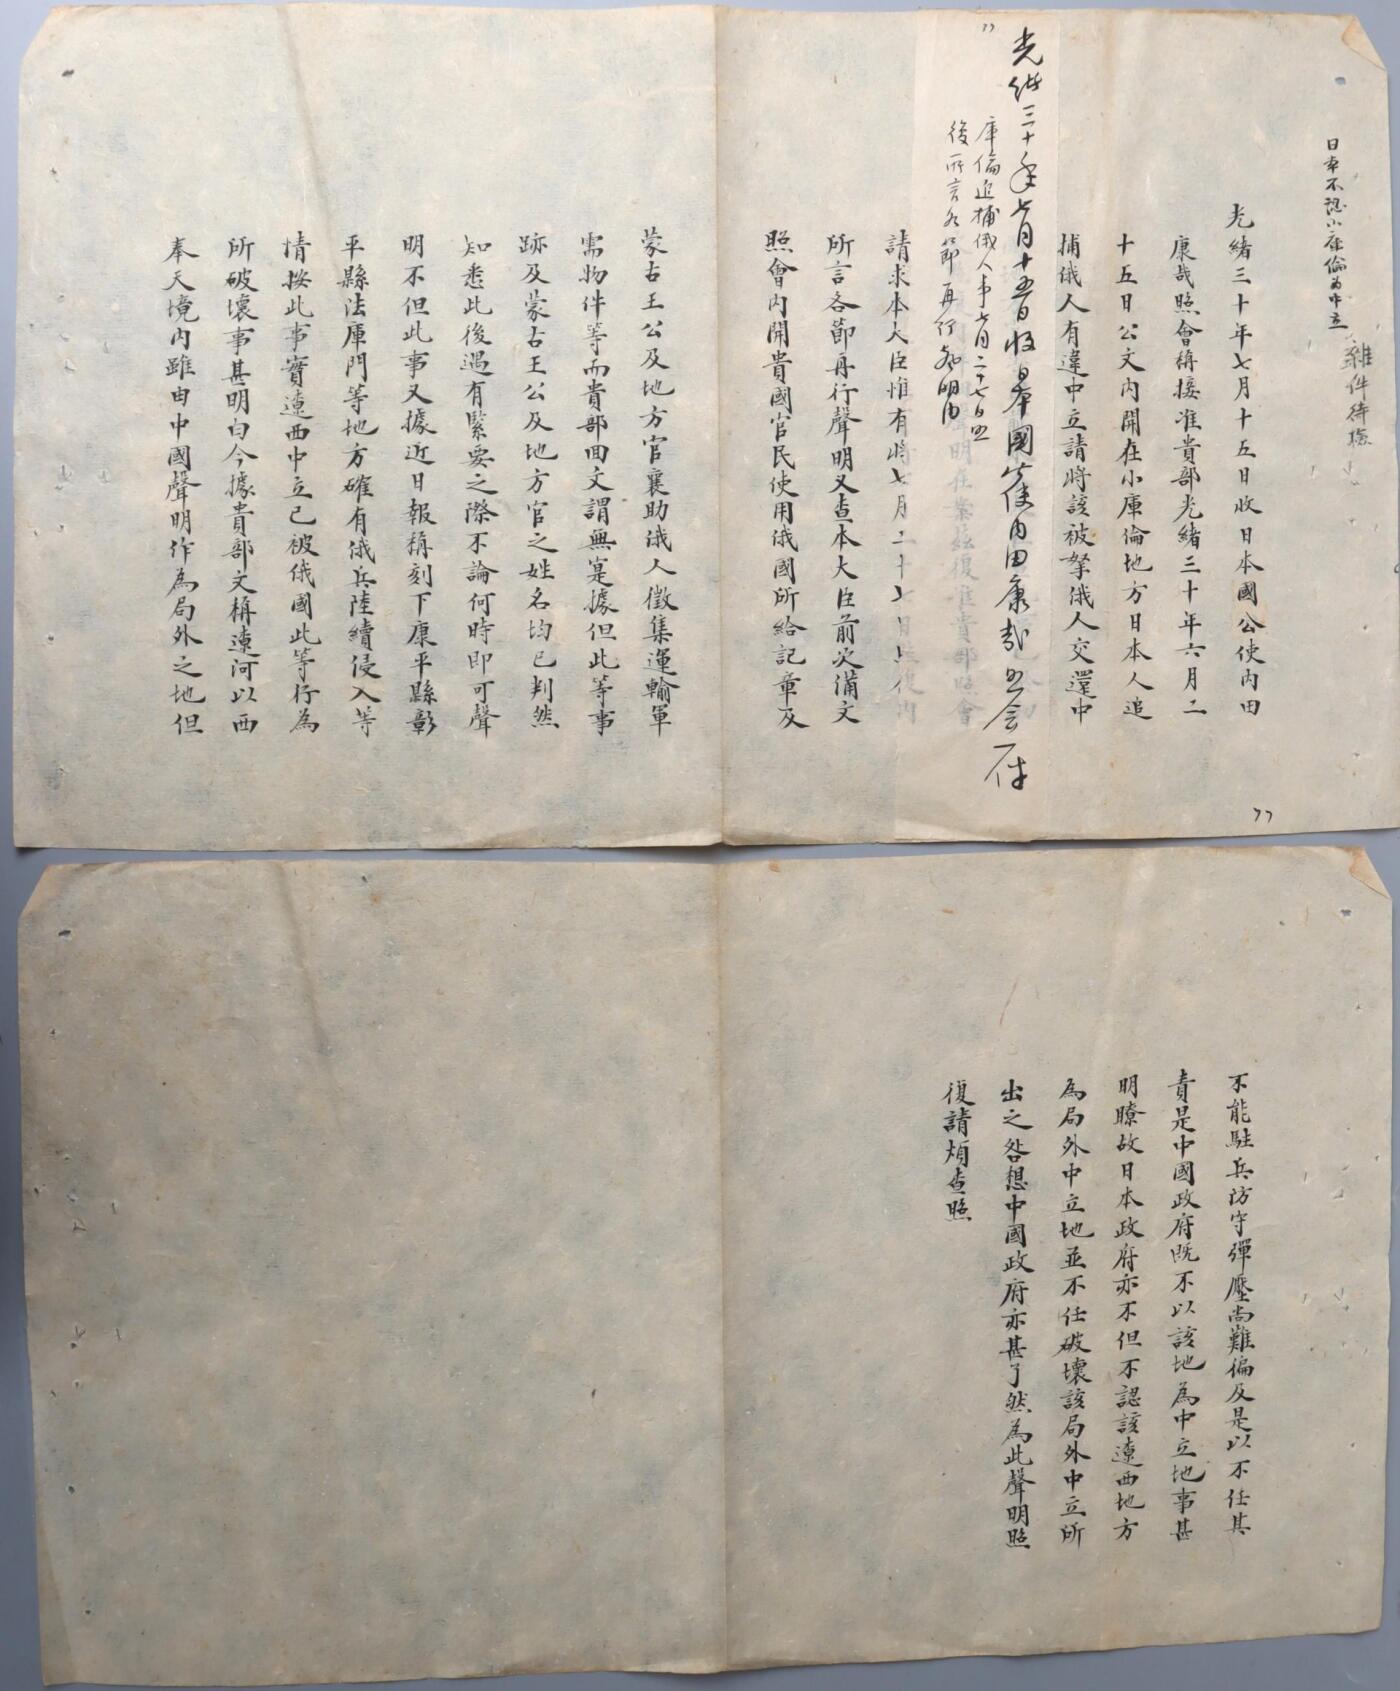 日本不認小庫倫為中立
雜件待檢
光緒三十年七月十五日收日本國公使內田
康哉照會稱接准貴部光緒三十年六月二
十五日公文內開在小庫倫地方日本人追
捕俄人有違中立請將該被拏俄人交還中
光緒三十年七月十五日收日本國公使內田康哉照會一件
庫倫追捕俄人事七月二十七日照
後所言各節再行聲明由
聲明在案茲復准貴部照會
請求本大臣惟有將七月二十七日照復內
所言各節再行聲明又查本大臣前次備文
照會內開貴國官民使用俄國所給記章及
蒙古王公及地方官襄助俄人徵集運輸軍
需物件等而貴部回文謂無寔據但此等事
跡及蒙古王公及地方官之姓名均已判然
知悉此後遇有緊要之際不論何時即可聲
明不但此事又據近日報稱刻下康平縣彰
平縣法庫門等地方確有俄兵陸續侵入等
情按此事實遼西中立已被俄國此等行為
所破壞事甚明白今據貴部文稱遼河以西
奉天境內雖由中國聲明作為局外之地但
不能駐兵防守彈壓尚難偏及是以不任其
責是中國政府既不以該地為中立地事甚
明瞭故日本政府亦不但不認該遼西地方
為局外中立地並不任破壞該局外中立所
出之咎想中國政府亦甚了然為此聲明照
復請煩查照